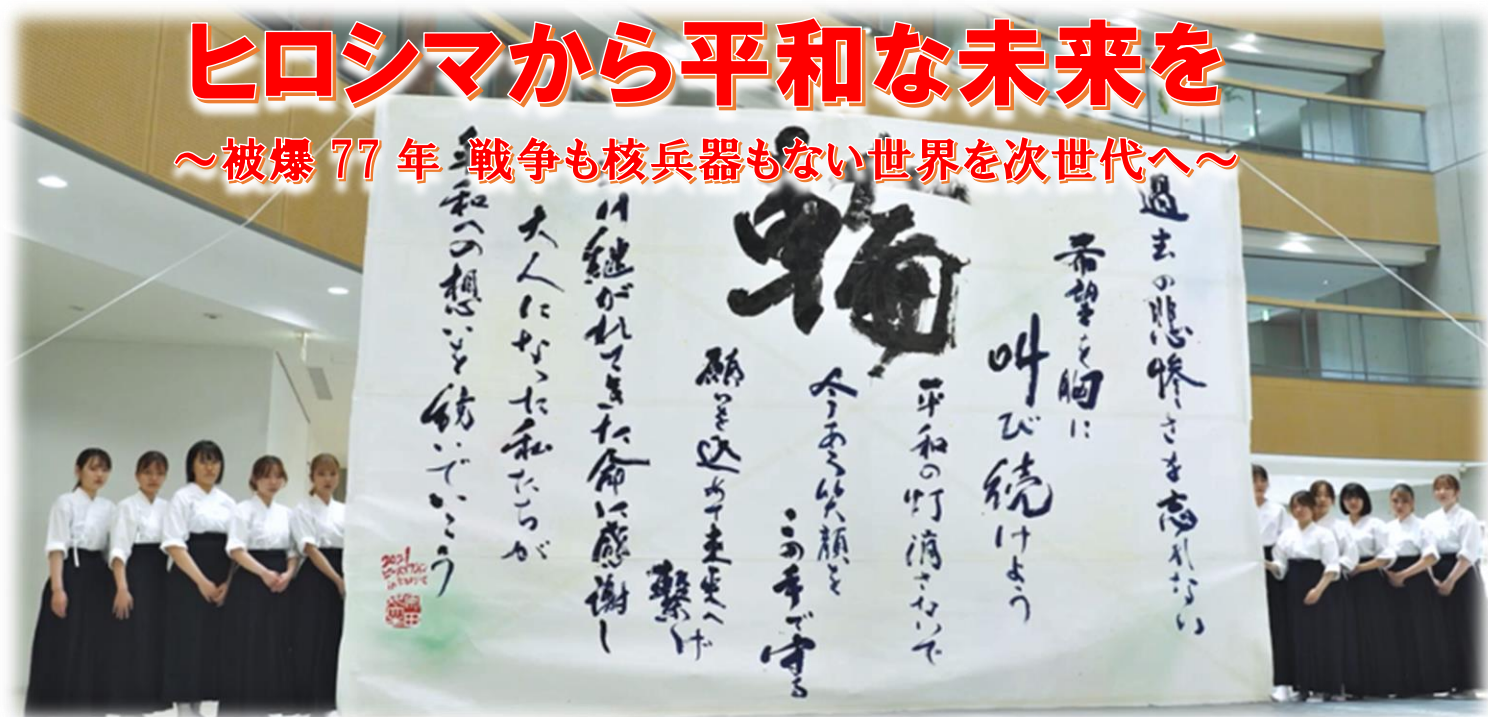 ヒロシマから平和な未来を
～被爆 77 年 戦争も核兵器もない世界を次世代へ～
過去の悲惨さを忘れない
希望を胸に
叫び続けよう
平和の灯消さないで
今ある笑顔を
この手で守る
輪
願いを込めて未来へ
繋げ
け継がれてきた命に感謝し
大人になった私たちが
平和への想いを紡いでいこう
2021